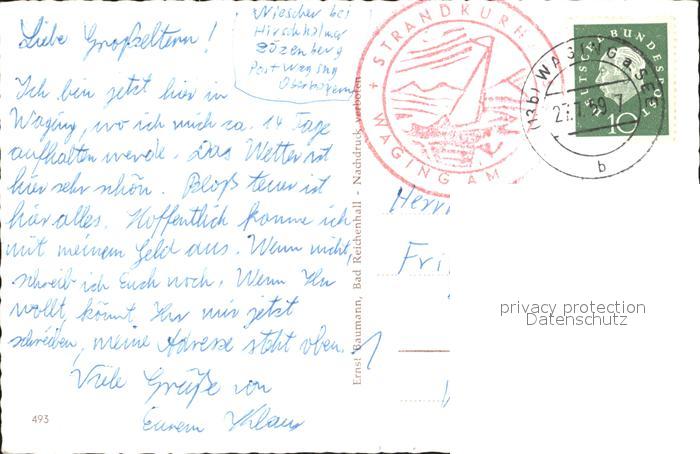 Wiescher bei
Hirschhalmer
Post Waging
Oberbayern
Liebe Großeltern!
Ich bin jetzt hier in
Waging, wo ich mich ca. 14 Tage
aufhalten werde. Das Wetter ist
hier sehr schön. Bloß teuer ist
hier alles. Hoffentlich komme ich
mit meinem Geld aus. Wenn nicht,
schreib ich Euch noch. Wenn Ihr
wollt, könnt Ihr mir jetzt
schreiben, meine Adresse steht oben.
Viele Grüße von
Eurem Klaus
493
Ernst Baumann, Bad Reichenhall - Nachdruck verboten
+ STRANDKURH
WAGING AM
DEUTSCHE BUNDESPOST
10
(13b) WAGING a SEE
27.7.59.-7
b
Herrn
Fri
privacy protection
Datenschutz